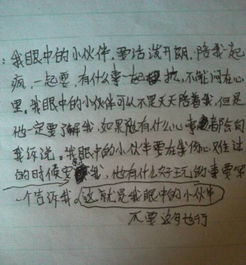 :我眼中的小伙伴,要活泼开朗,陪我起
疯,一起耍,有什么事一起扛,不能闷在心
里。我眼中的小伙伴可以不是天天陪着我,但是
他一定要了解我,如果他有什么心事都会的
我诉说。我眼中的小伙伴要在我伤心难过
的时候安我,他有什么好玩的事要第
一个告诉我。这就是我眼中的小伙伴
不要这身也行